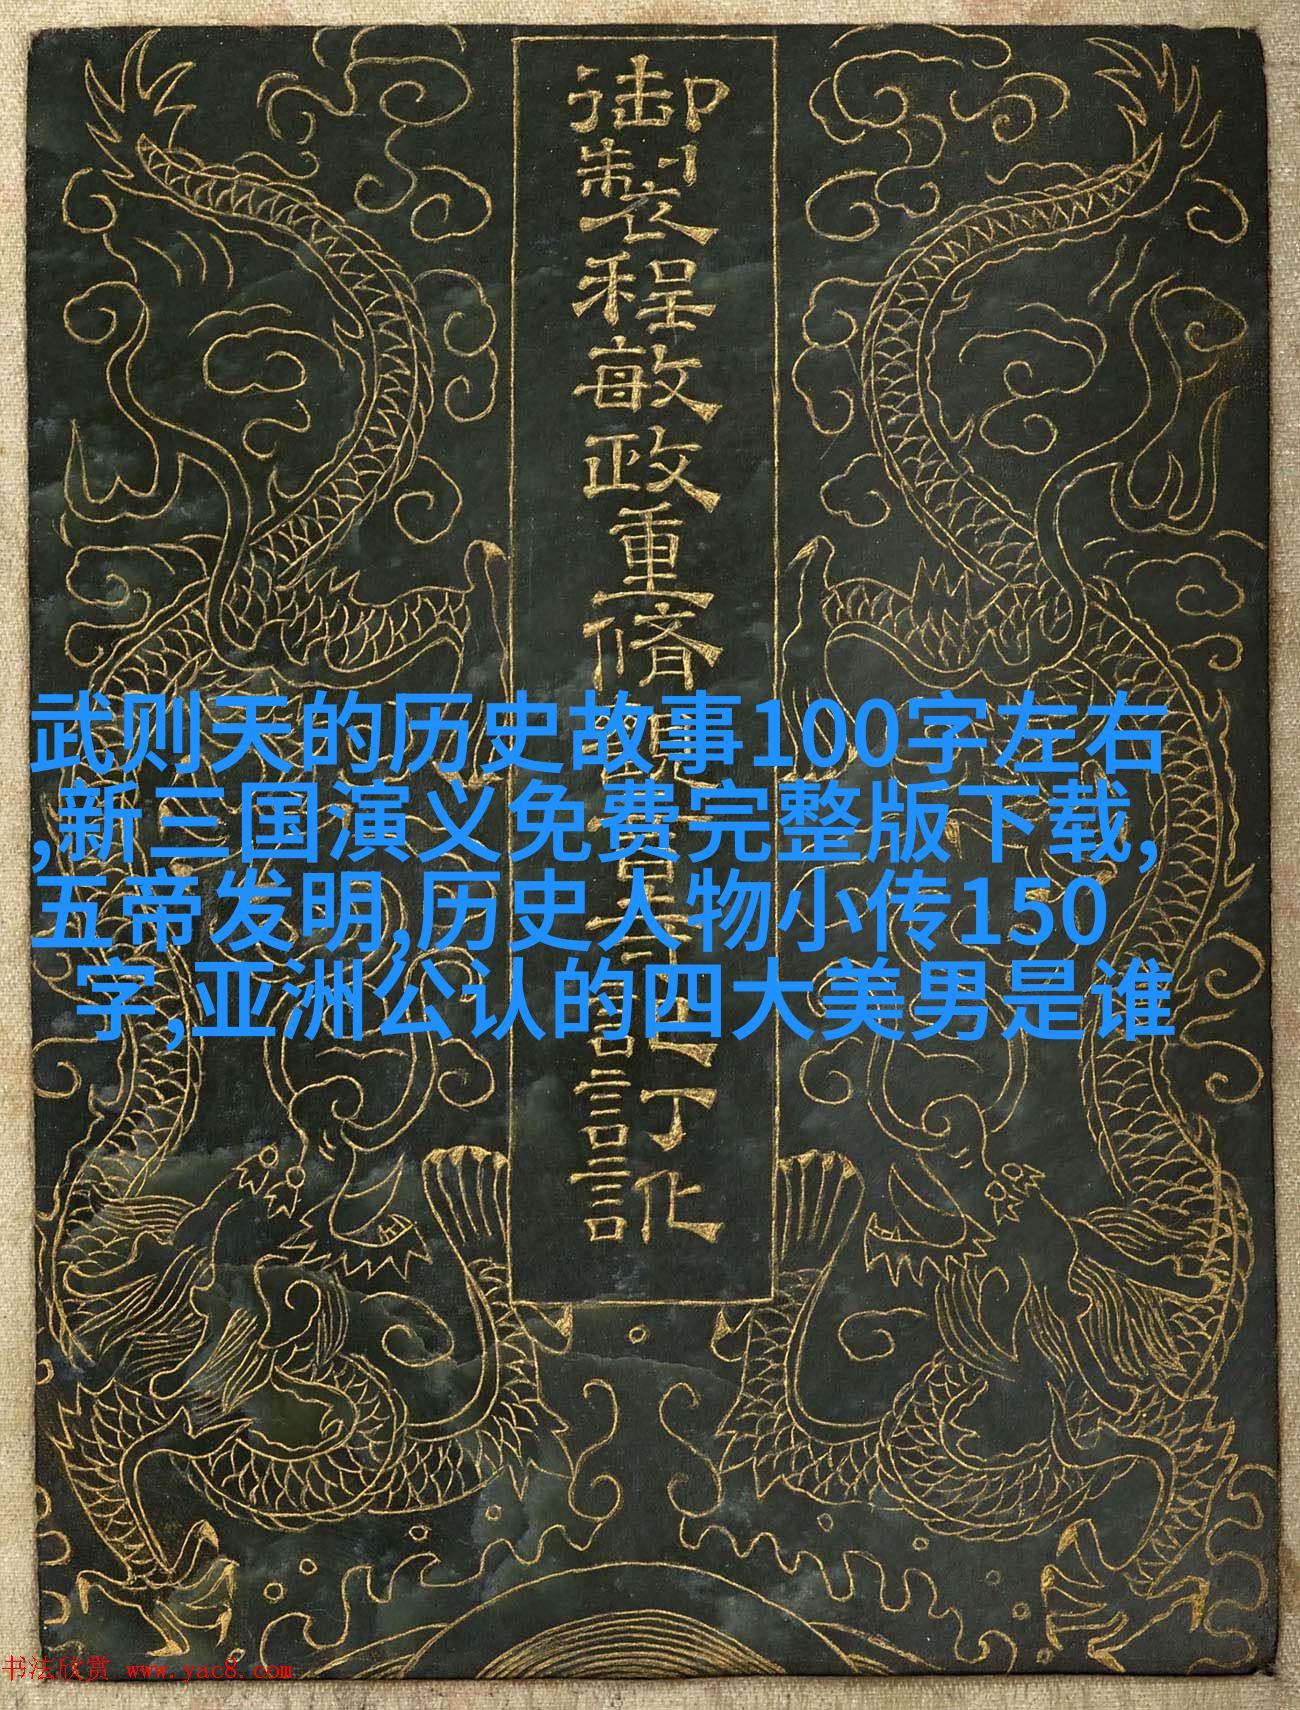 御製程敏政重脩
訂訛
武则天的历史故事100字左右
,新三国演义免费完整版下载,
五帝发明,历史人物小传150
字,亚洲公认的四大美男是谁
书法欣赏 www.yac8.com